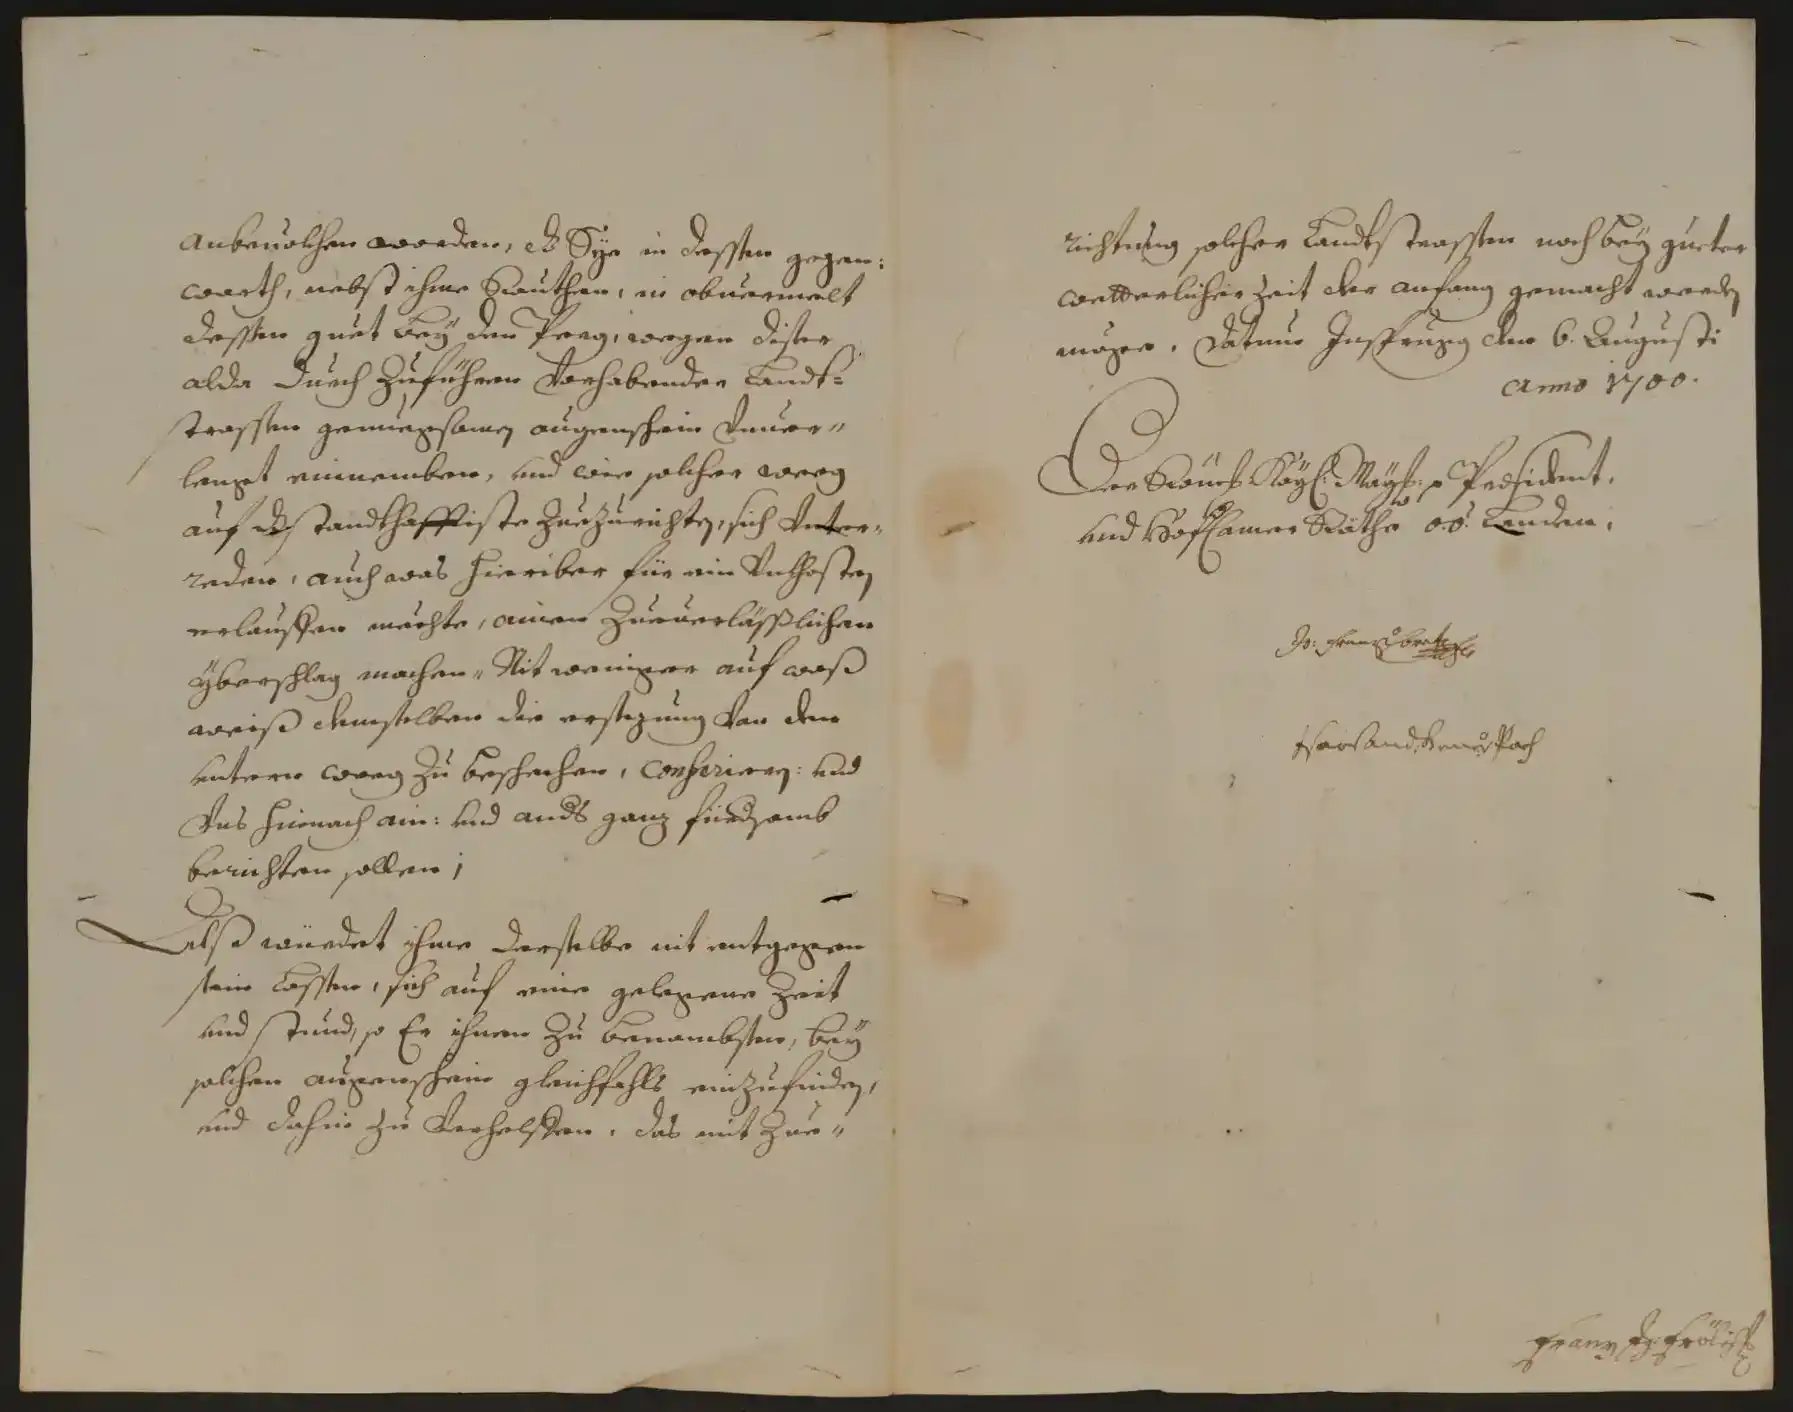 anbevolhen worden, dß Sÿe in dessen gegen:
warth, nebst ihme Sauthen, in obvermelt
dessen guet beÿ den Perg, wegen diser
alda durch Zuführen vorhabender Landt=
strassen genuegsamen augenschein Unver=
lengt einnemben, und wie solcher weeg
auf dß standthaffiste Zuezurichten, sich Unter=
reden, auch was hieriber für ein Unchosten
erlauffen mechte, ainen Zueverlässlichen
Yberschlag machen, Nit weniger auf waß
weiß demselben die ersezung von dem
untern weeg zu beschechen, conferieren: und
Uns hienach ain: und anders ganz fürdsamb
berichten sollen;
Alß würdet ihme derselbe nit entgegen
sein lassen, sich auf eine gelegene Zeit
und stund, so Er ihnen zu benambsen, beÿ
solchen augenschein gleichfahls einzufinden,
und dahin zu verhelffen, das mit Zue=
richtung solcher Landtstrassen noch beÿ gueter
wetterlicher Zeit der anfang gemacht werden
möge. Datum Ÿnsprugg den 6. Augusti
Anno 1700.
Der Röm: Kaÿ: Maÿ: Præsident,
und HofCamer Räthe o:ö: Landen,
Franz